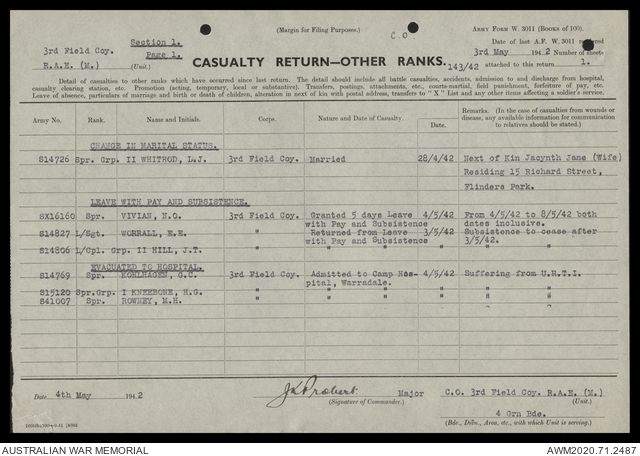 (Margin for Filing Purposes.)
C.O
ARMY FORM W. 3011 (BOOKS OF 100).
Section 1.
Date of last A.F. W. 3011 rendered
3rd Field Coy.
Page 1.
3rd May 1942 Number of sheets
R.A.E. (M.) (Unit.)
CASUALTY RETURN—OTHER RANKS.
143/42 attached to this return 1.
Detail of casualties to other ranks which have occurred since last return. The detail should include all battle casualties, accidents, admission to and discharge from hospital,
casualty clearing station, etc. Promotion (acting, temporary, local or substantive). Transfers, postings, attachments, etc., courts-martial, field punishment, forfeiture of pay, etc.
Leave of absence, particulars of marriage and birth or death of children, alteration in next of kin with postal address, transfers to "X" List and any other items affecting a soldier's service.
Army No. Rank. Name and Initials. Corps. Nature and Date of Casualty. Date. Remarks. (In the case of casualties from wounds or disease, any available information for communication to relatives should be stated.)
CHANGE IN MARITAL STATUS.
S14726 Spr. Grp. II WHITROD, L.J. 3rd Field Coy. Married 28/4/42 Next of Kin Jacynth Jane (Wife)
Residing 15 Richard Street,
Flinders Park.
LEAVE WITH PAY AND SUBSISTENCE.
SX16160 Spr. VIVIAN, N.O. 3rd Field Coy. Granted 5 days Leave 4/5/42 From 4/5/42 to 8/5/42 both
with Pay and Subsistence dates inclusive.
S14827 L/Sgt. WORRALL, E.E. " Returned from Leave 3/5/42 Subsistence to cease after
with Pay and Subsistence 3/5/42.
S14806 L/Cpl. Grp. II HILL, J.T. " " " "
EVACUATED TO HOSPITAL.
S14769 Spr. KOHLHAGEN, G.C. 3rd Field Coy. Admitted to Camp Hos- 4/5/42 Suffering from U.R.T.I.
pital, Warradale.
S15120 Spr.Grp. I KNEEBONE, H.G. " " " " " "
S41007 Spr. ROWNEY, M.H. " " " " " "
Date 4th May 1942 Major C.O. 3rd Field Coy. R.A.E. (M.)
(Signature of Commander.) (Unit.)
4 Grn Bde.
(Bde., Divn., Area, etc., with which Unit is serving.)
AUSTRALIAN WAR MEMORIAL AWM2020.71.2487